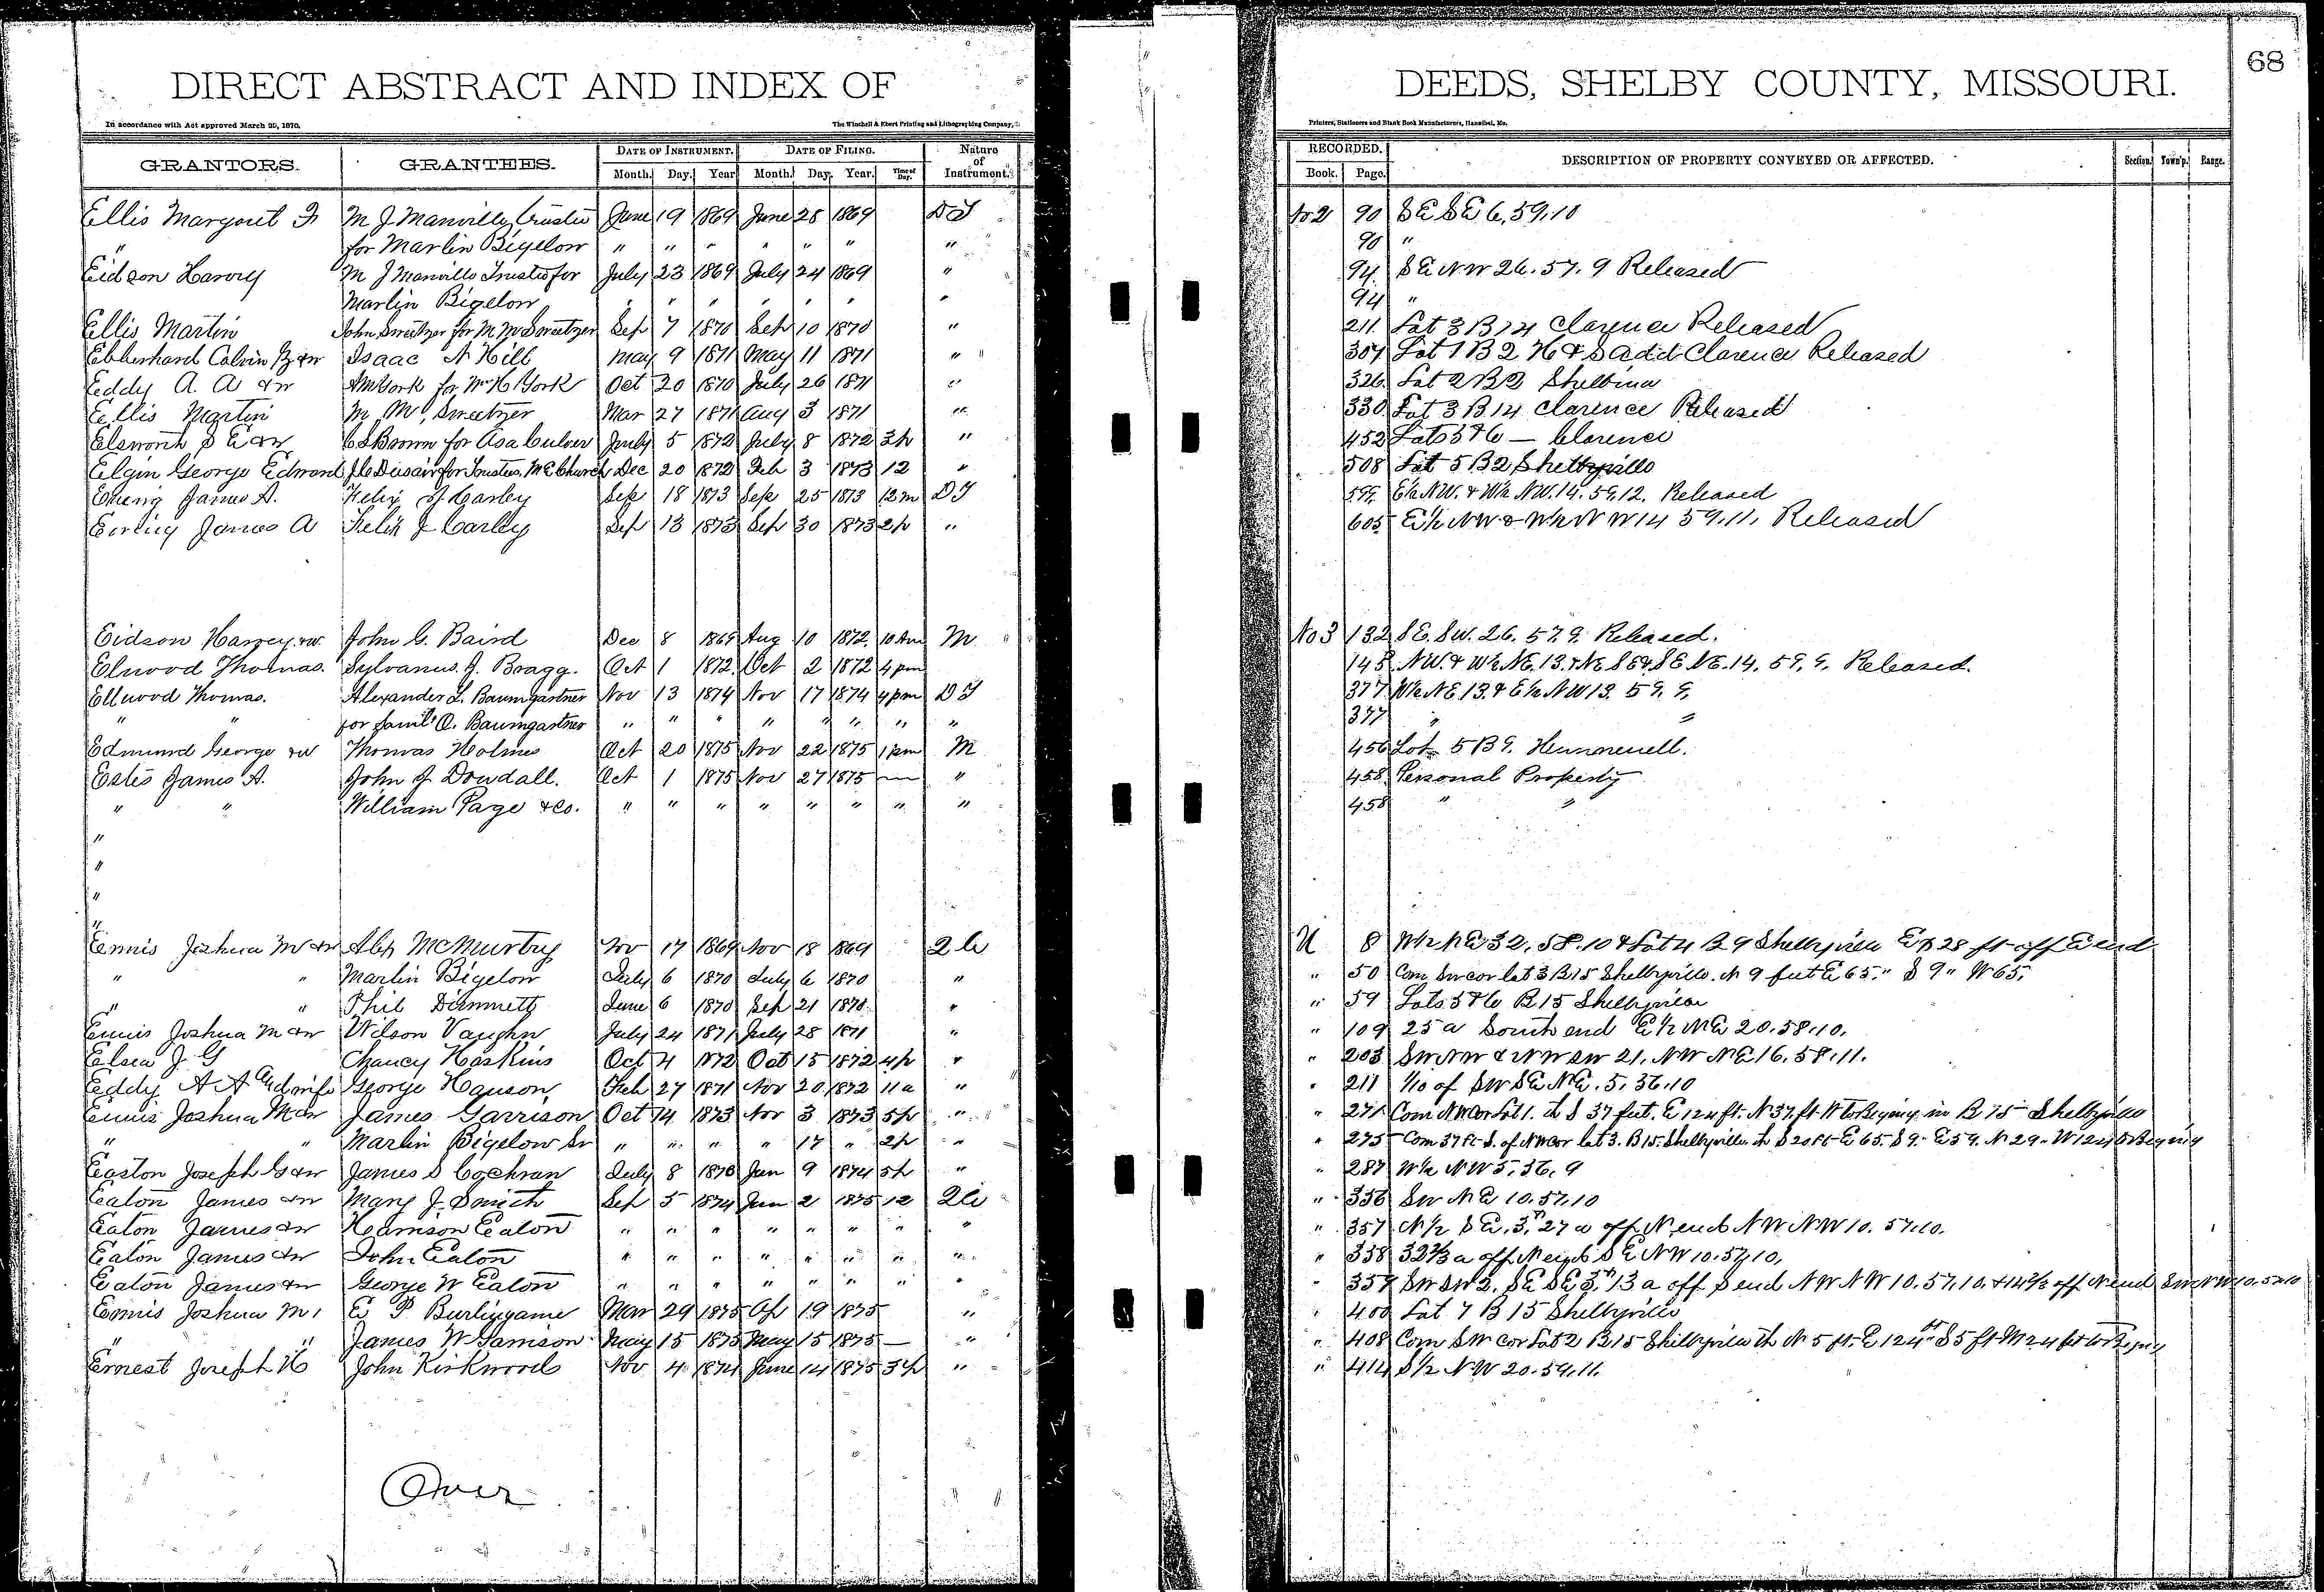 68
DIRECT ABSTRACT AND INDEX OF DEEDS, SHELBY COUNTY, MISSOURI.
In accordance with Act approved March 25, 1870. The Winchell & Ebert Printing and Lithographing Company, Printers, Stationers and Blank Book Manufacturers, Hannibal, Mo.
GRANTORS. GRANTEES. DATE OF INSTRUMENT. DATE OF FILING. Nature of Instrument. RECORDED. DESCRIPTION OF PROPERTY CONVEYED OR AFFECTED. Section. Town'p. Range.
Month. Day. Year Month. Day. Year. Time of Day. Book. Page.
Ellis Margaret F M J Manville Trustee June 19 1869 June 28 1869 DT No 2 90 SE SE 6, 59, 10
" for Marlin Bigelow " " " " " " " 90 "
Eidson Harvey M J Manville Trustee for July 23 1869 July 24 1869 " 94 SE NW 26. 57. 9 Released
Marlin Bigelow " " " " " " " 94 "
Ellis Martin John Sweetzer for M M Sweetzer Sep 7 1870 Sep 10 1870 " 211. Lot 3 B 14 Clarence Released
Ebberhard Calvin B &w Isaac N Hill May 9 1871 May 11 1871 " " 304 Lot 1 B 2 H & S add Clarence Released
Eddy A. A &w York for Wm H York Oct 20 1870 July 26 1871 " 326. Lot 2 B 2 Shelbina
Ellis Martin M. M. Sweetzer Mar 27 1871 Aug 3 1871 " 330 Lot 3 B 14 Clarence Released
Elsworth S E &w C S Brown for Asa Culver July 5 1872 July 8 1872 3p " 452 Lots 5 & 6 — Clarence
Elgin George Edmond for Trustees M E Church Dec 20 1872 Feb 3 1873 12 " 508 Lot 5 B 2 Shelbyville
Ewing James A. Felix J. Carley Sep 18 1873 Sep 25 1873 12m DT 599. E½ NW. & W½ NW. 14. 59. 12. Released
Ewing James A Felix J Carley Sep 13 1873 Sep 30 1873 2p " 605 E½ NW & W½ NW 14 59, 11, Released
Eidson Harvey &w. John G. Baird Dec 8 1869 Aug 10 1872. 10 Am M " No 3 132 SE. SW. 26. 57. 9. Released.
Elwood Thomas. Sylvanus J. Bragg. Oct 1 1872. Oct 2 1872 4 pm 145. NW. & W½ NE. 13. & NE SE & SE NE. 14. 59. 9. Released.
Ellwood Thomas. Alexander L. Baumgartner Nov 13 1874 Nov 17 1874 4 pm DT 377 W½ NE 13. & E½ NW 13. 59. 9.
" " for Saml C. Baumgartner " " " " " " " " 377 " "
Edmund George &w Thomas Holmes Oct 20 1875 Nov 22 1875 1 pm M 456 Lot 5 B 9. Hunnewell.
Estes James A. John J. Dowdall. Oct 1 1875 Nov 27 1875 — " 458. Personal Property
" " William Page & Co. " " " " " " " " 458 " "
"
"
"
"
Ennis Joshua M &w Alex McMurtry Nov 17 1869 Nov 18 1869 U 8 W½ NE 32. 58. 10 & Lot 4 B 9 Shelbyville Ex 28 ft off E end
" " Marlin Bigelow July 6 1870 July 6 1870 " " 50 Com SW cor lot 3 B 15 Shelbyville. N 9 feet E 65 " S 9 " W 65.
" " Phil Dimmett June 6 1870 Sep 21 1870 " " 59 Lots 5 & 6 B 15 Shelbyville
Ennis Joshua M &w Wilson Vaughn July 24 1871 July 28 1871 " " 109 25 a South end E½ NE 20. 58. 10.
Elsea J. G Chancy Haskins Oct 4 1872 Oct 15 1872 4p " " 203 SW NW & NW SW 21. NW NE 16. 58. 11.
Eddy A A and wife George Hanson Feb 27 1871 Nov 20 1872 11 a " " 211 1/10 of SW SE NE. 5. 56. 10
Ennis Joshua M &w James Garrison Oct 14 1873 Nov 3 1873 5p " " 271 Com NW cor Lot 1. th S 37 feet. E 124 ft. N 37 ft W to Beging in B 15 Shelbyville
" " Marlin Bigelow Sr " " " " 17 " 2p " " 275 Com 37 ft S. of NW cor lot 3. B 15. Shelbyville th S 20 ft E 65. S 9. E 59. N 29. W 124 to Beging
Easton Joseph G &w James S Cochran July 8 1873 Jan 9 1874 5p " " 287 W½ NW 5. 56. 9
Eaton James &w Mary J. Smith Sep 5 1874 Jan 2 1875 12 " 356 SW NE 10. 57. 10
Eaton James &w Harrison Eaton " " " " " " " " " 357 N½ SE. 3. 27 a off N. end NW NW 10. 57. 10.
Eaton James &w John Eaton " " " " " " " " " 358 32⅔ a off N end SE NW 10. 57. 10.
Eaton James &w George W Eaton " " " " " " " " " 359 SW SW 2. SE SE 3. 13 a off S end NW NW 10. 57. 10. & 14⅔ off N end SW NW 10. 57. 10
Ennis Joshua M. E P Burlingame Mar 29 1875 Ap 19 1875 " " 400 Lot 7 B 15 Shelbyville
" " James W Garrison May 15 1875 May 15 1875 — " " 408 Com SW cor Lot 2 B 15 Shelbyville th N 5 ft. E 124 ft S 5 ft W 24 ft to Beging
Ernest Joseph H John Kirkwood Nov 4 1874 June 14 1875 3p " " 414 S½ NW 20. 59. 11.
Over